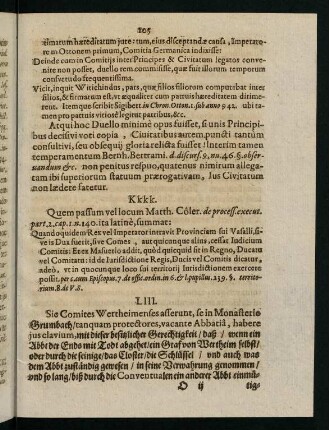 205
timatum hæreditatum jure: tum, ejus disceptandæ causa, Imperato-
rem Ottonem primum, Comitia Germanica indixisse:
Deinde cum in Comitijs inter Principes & Civitatum legatos conve-
nire non posset, duello rem commisisse, quæ fuit illorum temporum
consvetudo frequentissima.
Vicit, inquit Witichindus, pars, quæ filios filiorum computabat inter
filios, & firmatum est, vt æqualiter cum patruis hæreditatem dirime-
rent. Itemque scribit Sigibert in Chron. Ottom. 1. sub anno 942. ubi ta-
men pro patruis vitiosè legunt patribus, &c.
Atqui hoc Duello minimè opus fuisset, si unis Principi-
bus decisivi voti copia, Civitatibus autem, puncti tantum
consultivi, seu obsequij gloria relicta fuisset: Interim tamen
temperamentum Bernh. Bertrami. d. discurs. 9. nu. 46. §. obser-
vandum &c. non penitus respuo, quatenus nimirum allega-
tam ibi superiorum statuum prærogativam, Jus Civitatum
non lædere satetur.
Kkkk.
Quem passum vel locum Matth. Cöler. de process. execut.
part. 2. cap. 1. n. 140. ita latinè, summat:
Quando quidem Rex vel Imperator intravit Provinciam sui Vasalli, si-
ve is Dux fuerit, sive Comes, aut quicunque alius, cessat Judicium
Comitis: Etenì Masuerio addit, quòd quicquid sit in Regno, Ducatu
vel Comitatu: id de Jurisdictione Regis, Ducis vel Comitis dicatur,
adeò, vt in quocunque loco sui territorij Jurisdictionem exercere
possit. per c. cum Episcopus. 7. de offic. ordin. in 6. & l. pupillus. 239. §. territo-
rium. 8. de V. S.
LIII.
Sic Comites Wertheimenses asserunt, se in Monasterio
Grumbach/ tanquam protectores, vacante Abbatiâ, habere
jus clavium, mit dieser besitzlicher Gerechtigkeit/ daß/ wenn ein
Abbt der Ends mit Todt abgehet/ ein Graf von Wertheim selbst/
oder durch die seinige/ das Closter/ die Schlüssel/ und auch was
dem Abbt zuständig gewesen/ in seine Verwahrung genommen/
und so lang/ biß durch die Conventualen ein anderer Abbt einmü-
O ij
tig-